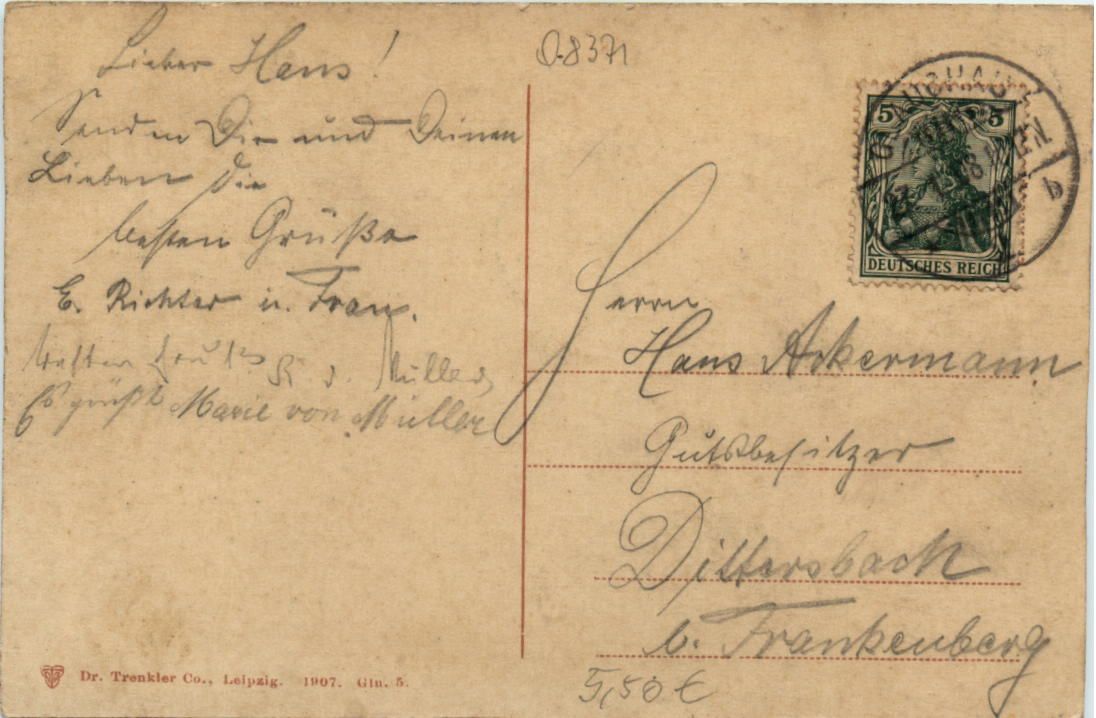 Lieber Hans!
Senden Dir und Deinen
Lieben die
besten Grüße
E. Richter u. Frau.
besten Gruß R. v. Müller
Es grüßt Marie von Müller
Q-8371
5 5
DEUTSCHES REICH
b
Herrn
Hans Ackermann
Gutsbesitzer
Dittersbach
b. Frankenberg
5,50 €
Dr. Trenkler Co., Leipzig. 1907. Gln. 5.